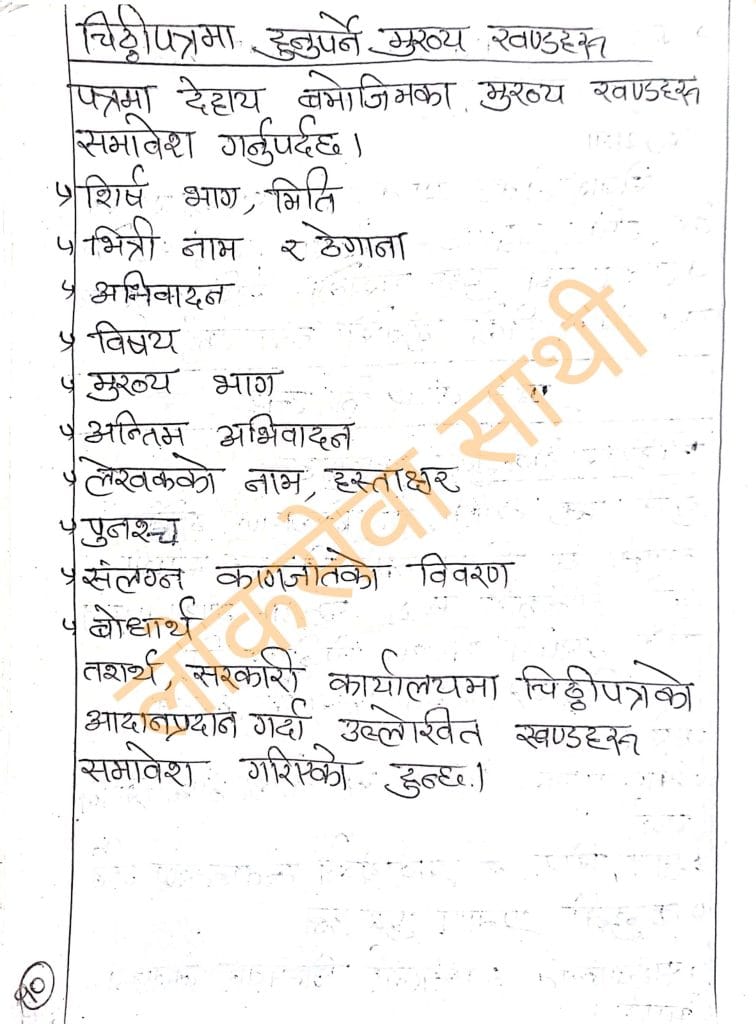 चिठ्ठीपत्रमा हुनुपर्ने मुख्य खण्डहरू
पत्रमा देहाय बमोजिमका मुख्य खण्डहरू
समावेश गर्नुपर्दछ।
शिर्ष भाग, मिति
भित्री नाम र ठेगाना
अभिवादन
विषय
मुख्य भाग
अन्तिम अभिवादन
लेखकको नाम, हस्ताक्षर
पुनश्च
संलग्न कागजातको विवरण
बोधार्थ
तशर्थ, सरकारी कार्यालयमा चिठ्ठीपत्रको
आदानप्रदान गर्दा उल्लेखित खण्डहरू
समावेश गरिएको हुन्छ।
लोकसेवा साथी
१०